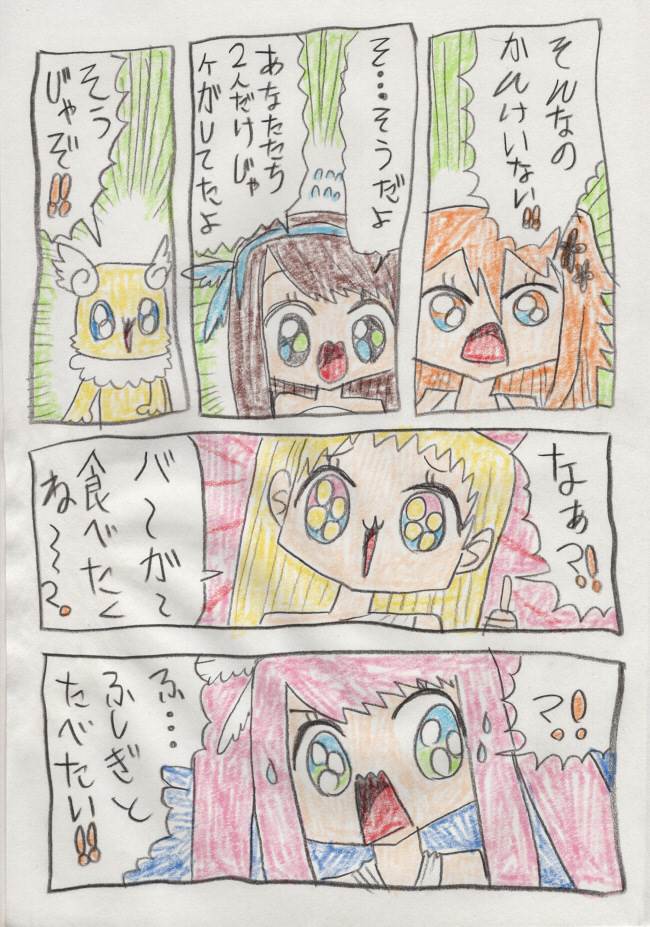 そんなの
かんけいない!!
そ…そうだよ
あなたたち
2人だけじゃ
ケがしてたよ
そう
じゃぞ!!
なぁ?!
バ〜ガ〜
食べたく
ね〜〜?
?!
ふ…
ふしぎと
たべたい!!